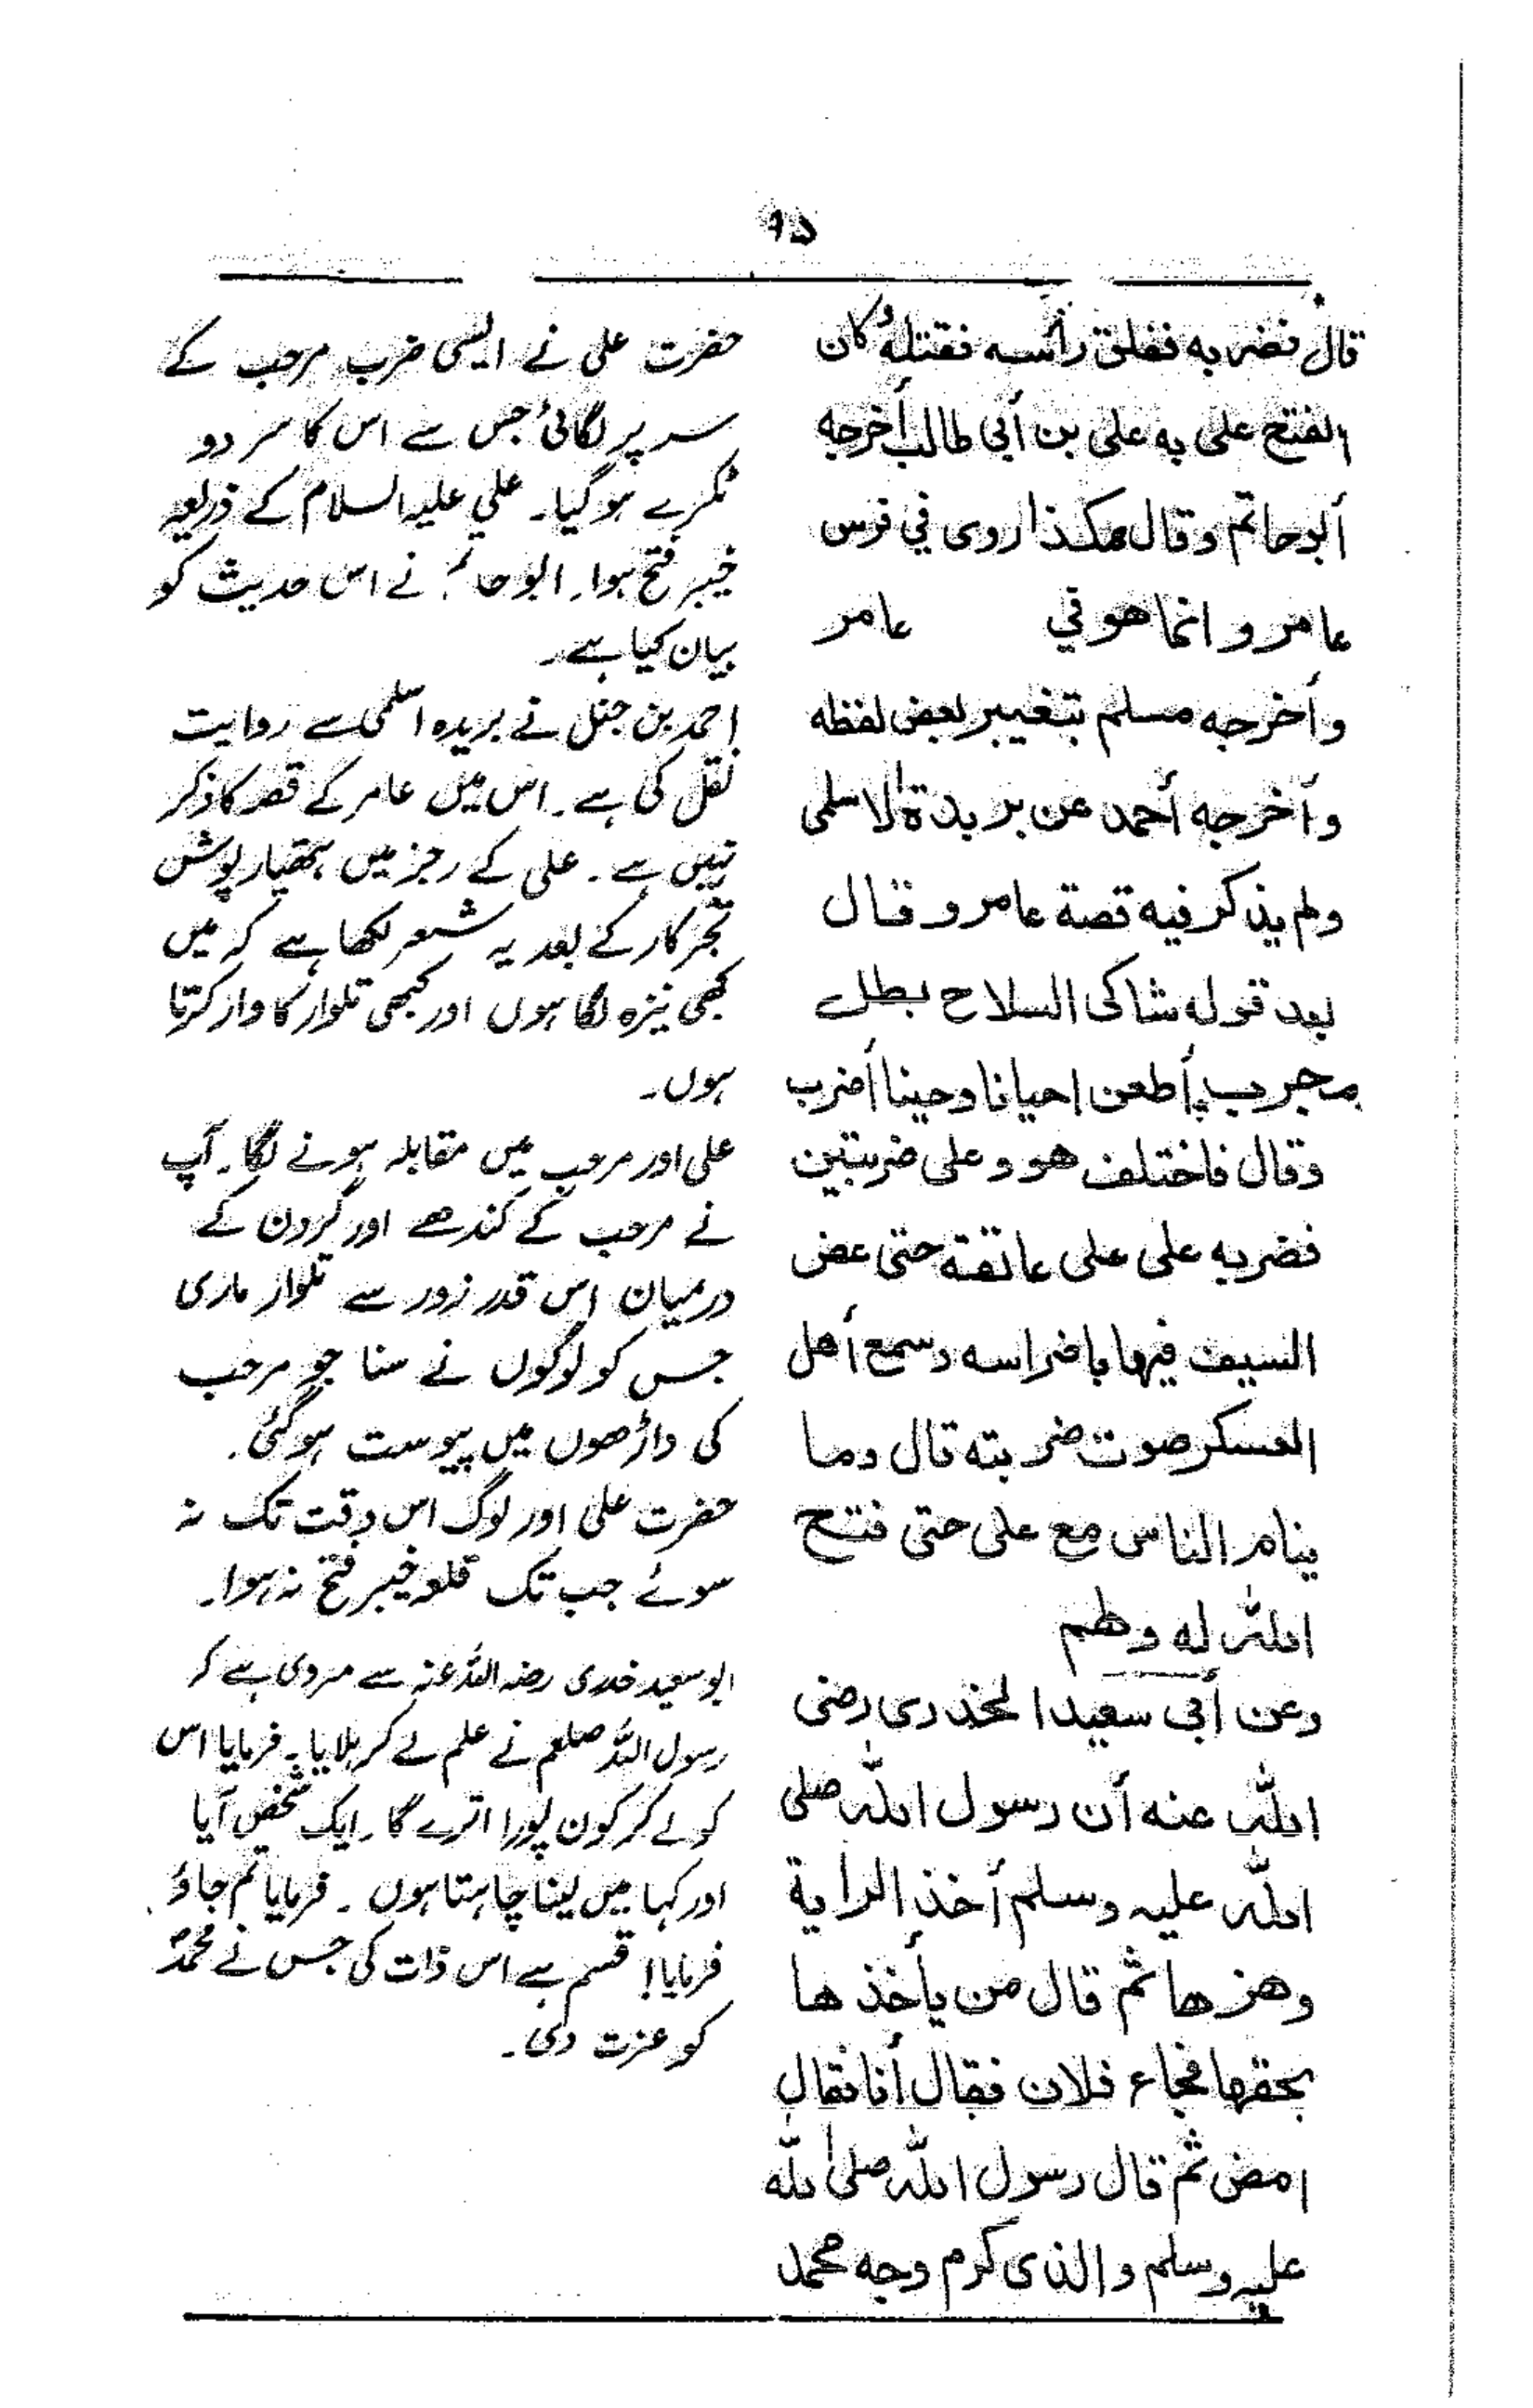 ٩٥
قال فضربه ففلق رأسه فقتله وكان
الفتح على يه على بن أبي طالب أخرجه
أبو حاتم وقال هكذا روى في فرس
عامر و انما هو في عامر
وأخرجه مسلم بتغيير بعض لفظه
وأخرجه أحمد عن بريدة الاسلمى
ولم يذكر فيه قصة عامر و قال
بعد قوله شاكى السلاح بطل
مجرب أطعن احيانا وحينا أضرب
وقال فاختلف هو و على ضربتين
فضربه على على عاتقة حتى عض
السيف فيها باضراسه وسمع أهل
العسكر صوت ضربته قال وما
ينام الناس مع على حتى فتح
الله له ولهم
وعن أبي سعيد الخدرى رضى
الله عنه أن رسول الله صلى
الله عليه وسلم أخذ الراية
وهزها ثم قال من يأخذ ها
بحقها فجاء فلان فقال أنا فقال
امض ثم قال رسول الله صلى الله
عليه وسلم والذى كرم وجه محمد
حضرت علی نے ایسی ضرب مرحب کے
سر پر لگائی جس سے اس کا سر دو
ٹکڑے ہو گیا۔ علی علیہ السلام کے ذریعہ
خیبر فتح ہوا۔ ابو حاتم نے اس حدیث کو
بیان کیا ہے۔
احمد بن حنبل نے بریدہ اسلمی سے روایت
نقل کی ہے۔ اس میں عامر کے قصہ کا ذکر
نہیں ہے۔ علی کے رجز میں ہتھیار پوش
تجربہ کار کے بعد یہ شعر لکھا ہے کہ میں
کبھی نیزہ لگا ہوں اور کبھی تلوار کا وار کرتا
ہوں۔
علی اور مرحب میں مقابلہ ہونے لگا۔ آپ
نے مرحب کے کندھے اور گردن کے
درمیان اس قدر زور سے تلوار ماری
جس کو لوگوں نے سنا جو مرحب
کی داڑھوں میں پیوست ہو گئی۔
حضرت علی اور لوگ اس وقت تک نہ
سوئے جب تک قلعہ خیبر فتح نہ ہوا۔
ابو سعید خدری رضہ اللہ عنہ سے مروی ہے کہ
رسول اللہ صلعم نے علم لے کر ہلایا۔ فرمایا اس
کو لے کر کون پورا اترے گا۔ ایک شخص آیا
اور کہا میں لینا چاہتا ہوں ۔ فرمایا تم جاؤ
فرمایا! قسم ہے اس ذات کی جس نے محمدؐ
کو عزت دی۔